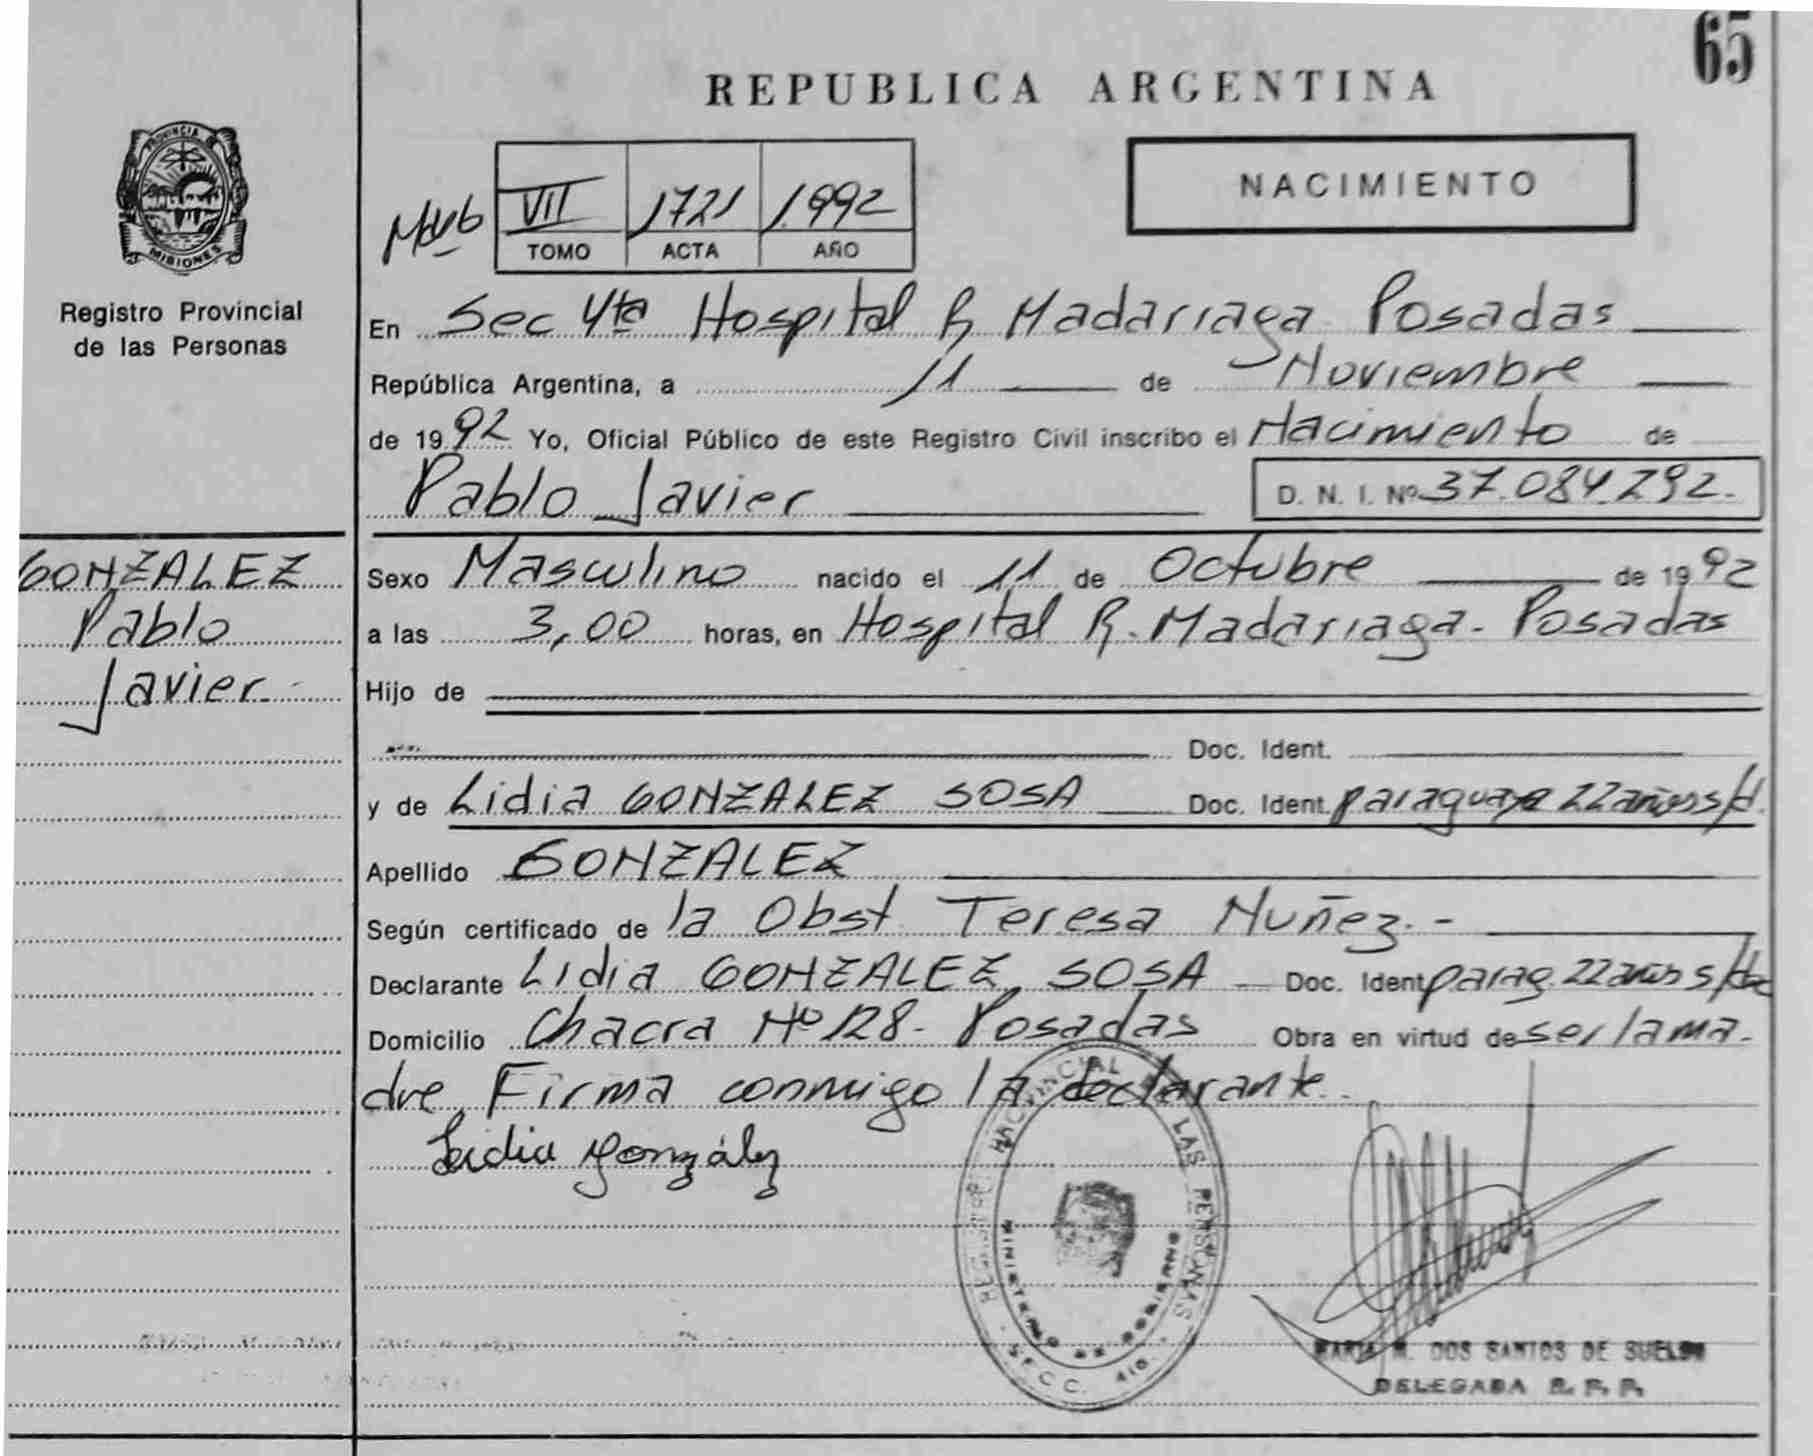 65
REPUBLICA ARGENTINA
PROVINCIA DE
MISIONES
Registro Provincial
de las Personas
VII 1721 1992
TOMO ACTA AÑO
NACIMIENTO
En Sec 4ta Hospital R Madariaga Posadas
República Argentina, a 11 de Noviembre
de 1992 Yo, Oficial Público de este Registro Civil inscribo el Nacimiento de
Pablo Javier D. N. I. Nº 37.084.292.
GONZALEZ
Pablo
Javier.-
Sexo Masculino nacido el 11 de Octubre de 1992
a las 3,00 horas, en Hospital R. Madariaga - Posadas
Hijo de
Doc. Ident.
y de Lidia GONZALEZ SOSA Doc. Ident. paraguaya 22 años s/d.
Apellido GONZALEZ
Según certificado de la Obst. Teresa Nuñez.-
Declarante Lidia GONZALEZ SOSA - Doc. Ident parag. 22 años s/doc
Domicilio Chacra Nº 128 - Posadas Obra en virtud de ser la ma-
dre, Firma conmigo la declarante.
Lidia González
REGISTRO PROVINCIAL DE LAS PERSONAS
MINISTERIO DE GOBIERNO
SECC. 4ta.
MARIA M. DOS SANTOS DE
DELEGADA R. P. P.